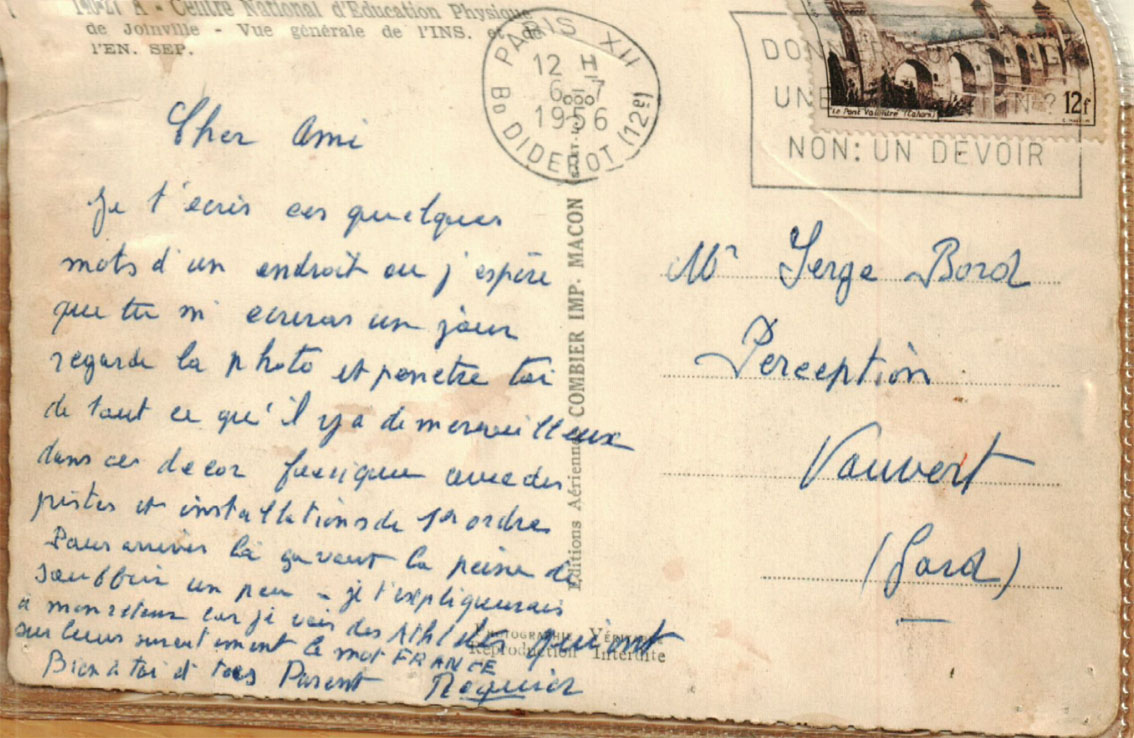 14-21 A - Centre National d'Education Physique
de Joinville - Vue générale de l'INS. et de
l'EN. SEP.
PARIS XII
12 H
6 - 7
1956
Bd DIDEROT (12e)
DONN
UNE ?
NON: UN DEVOIR
Le Pont Valentré (Cahors)
12f
Cher Ami
Je t'écris ces quelques
mots d'un endroit ou j'espère
que tu m'ecriras un jour
regarde la photo et penetre toi
de tout ce qu'il y a de merveilleux
dans ce decor avec des
pistes et installations de 1er ordre
Pour arriver là ça vaut la peine de
souffrir un peu - je t'expliquerais
à mon retour car je vois des Athletes qui ont
sur leurs survetement le mot FRANCE
Bien à toi et tes Parent
Editions Aériennes COMBIER IMP. MACON
PHOTOGRAPHIE VÉRITABLE
Reproduction Interdite
Mr Serge Bord
Perception
Vauvert
(Gard)